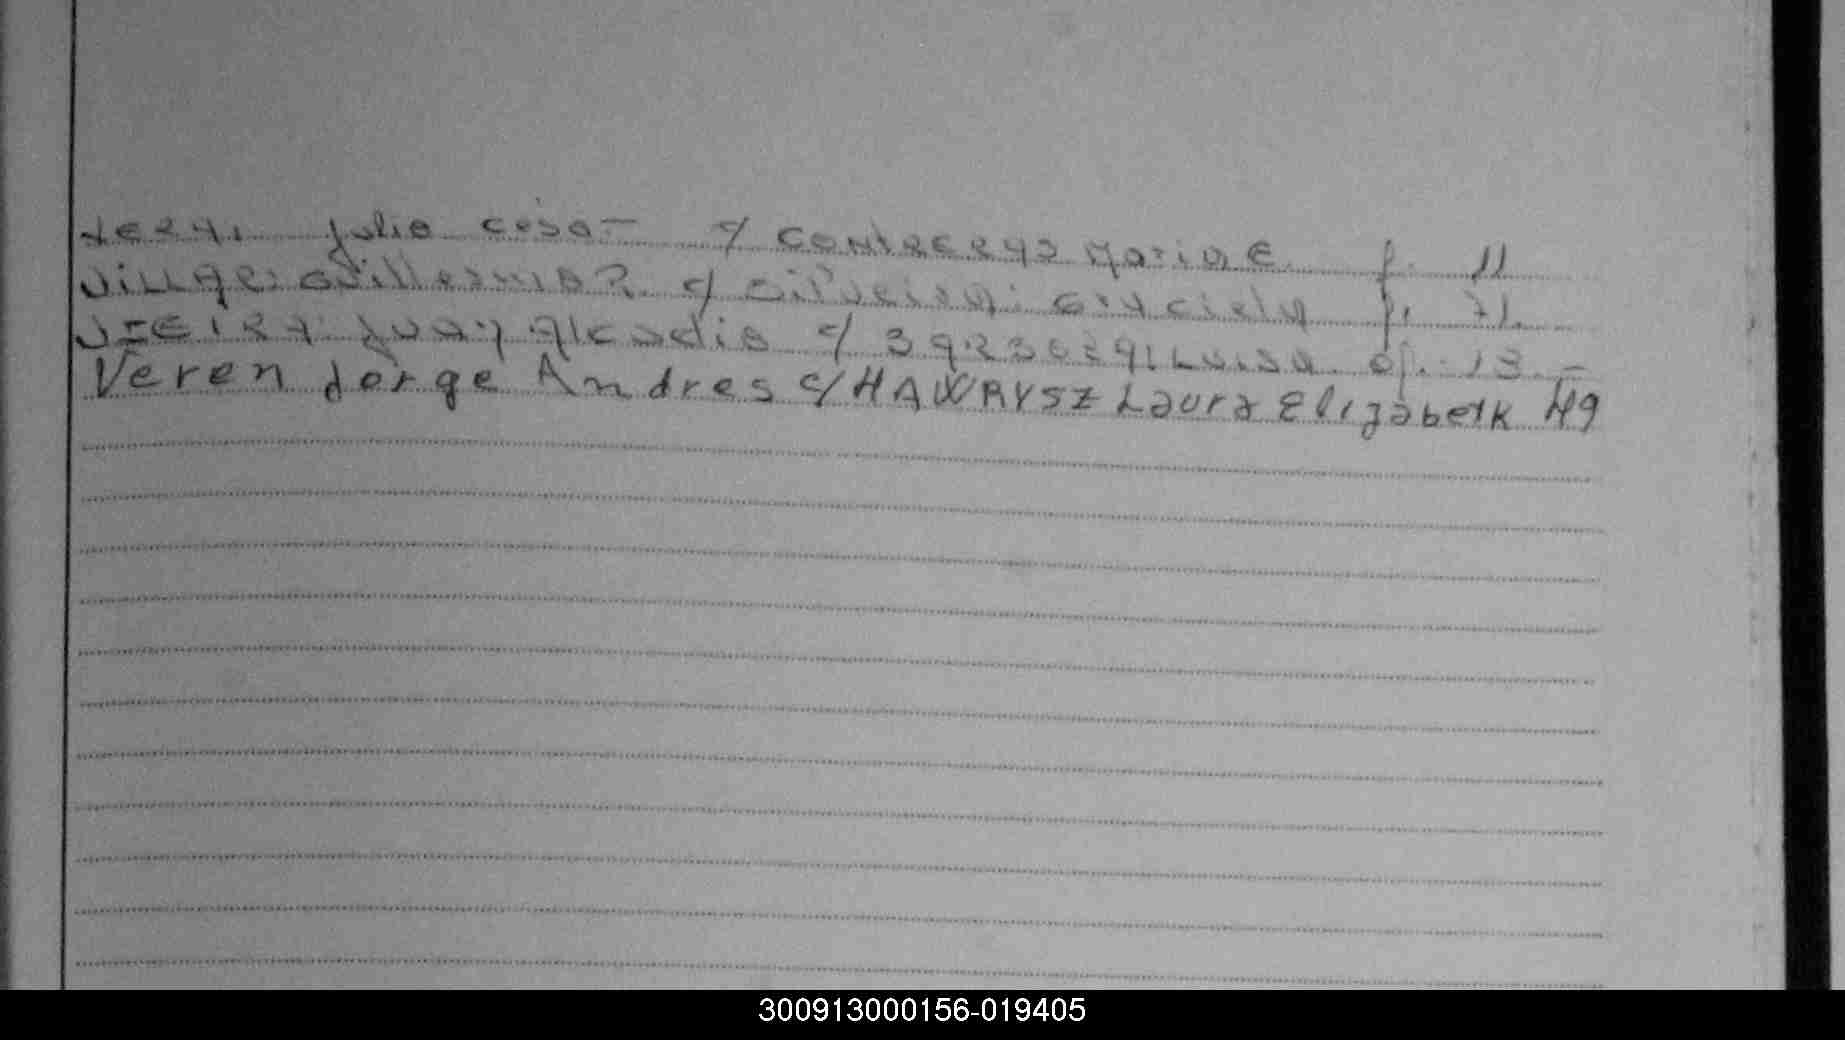 Julio Cesar c/ Contreras Maria E. f. 11
Villar Guillermo R. c/ Silveira Graciela f. 71
Vieira Juan c/ Luisa of. 13 -
Veren Jorge Andres c/ HAWRYSZ Laura Elizabeth 49
300913000156-019405